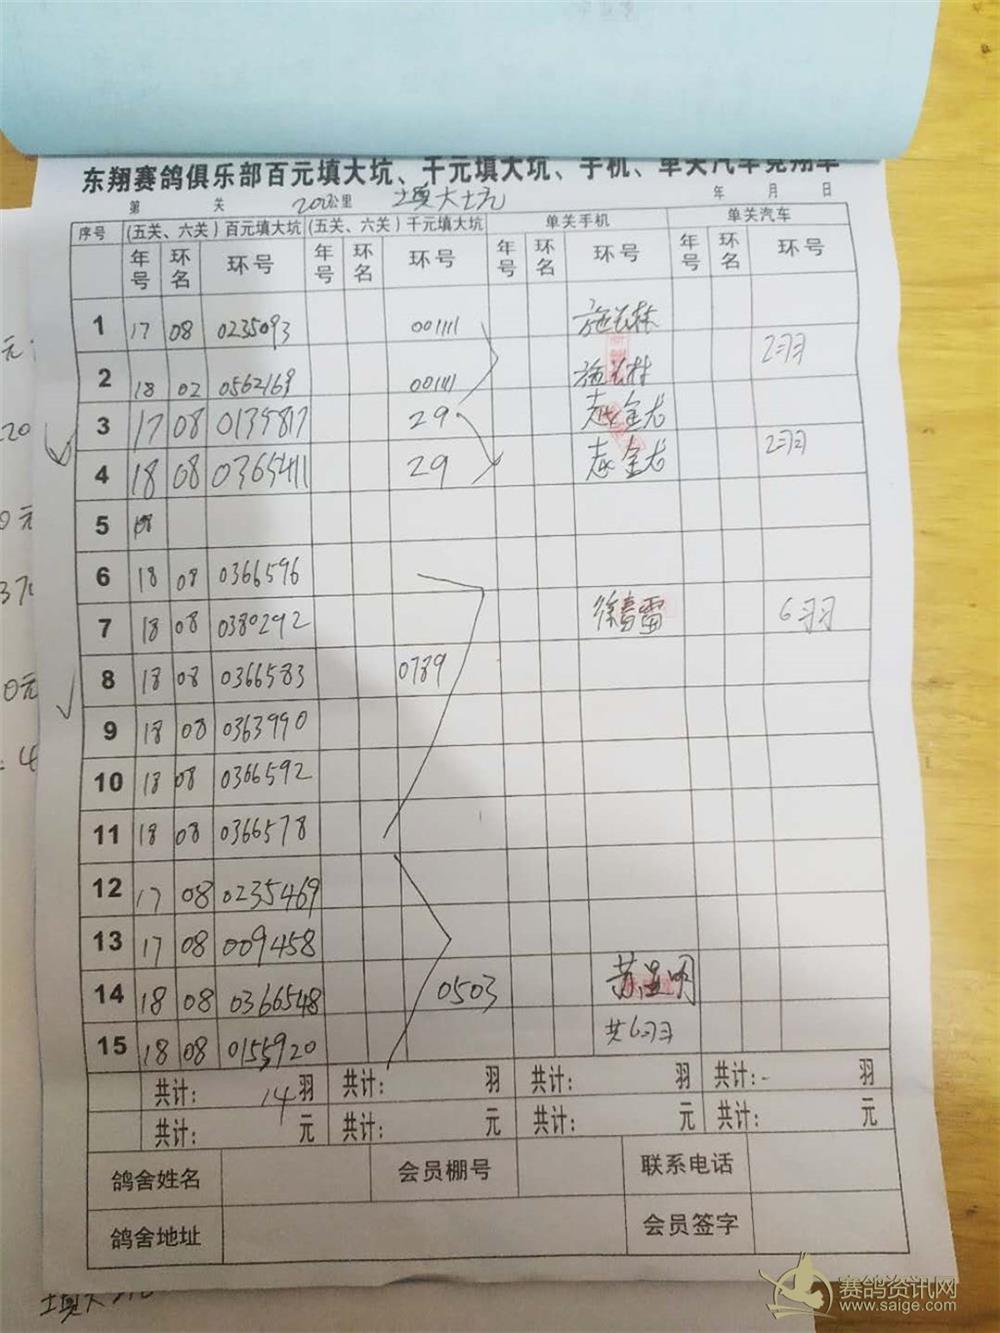 东翔赛鸽俱乐部百元填大坑、千元填大坑、手机、单关汽车竞翔单
第 关 200公里 填大坑 年 月 日
序号 (五关、六关)百元填大坑 (五关、六关)千元填大坑 单关手机 单关汽车
年号 环名 环号 年号 环名 环号 年号 环名 环号 年号 环名 环号
1 17 08 0235093 001111
2羽
2 18 02 0562169 001111
3 17 08 0139817 29 赵金龙
2羽
4 18 08 0365411 29 赵金龙
5 18
6 18 08 0366596
7 18 08 0380292 6羽
8 18 08 0366583 0789
9 18 08 0363990
10 18 08 0366592
11 18 08 0366578
12 17 08 0235469
13 17 08 009458
14 18 08 0366548 0503
15 18 08 0155920 共6羽
共计: 14 羽 共计: 羽 共计: 羽 共计: 羽
共计: 元 共计: 元 共计: 元 共计: 元
鸽舍姓名 会员棚号 联系电话
鸽舍地址 会员签字
赛鸽资讯网
www.saige.com